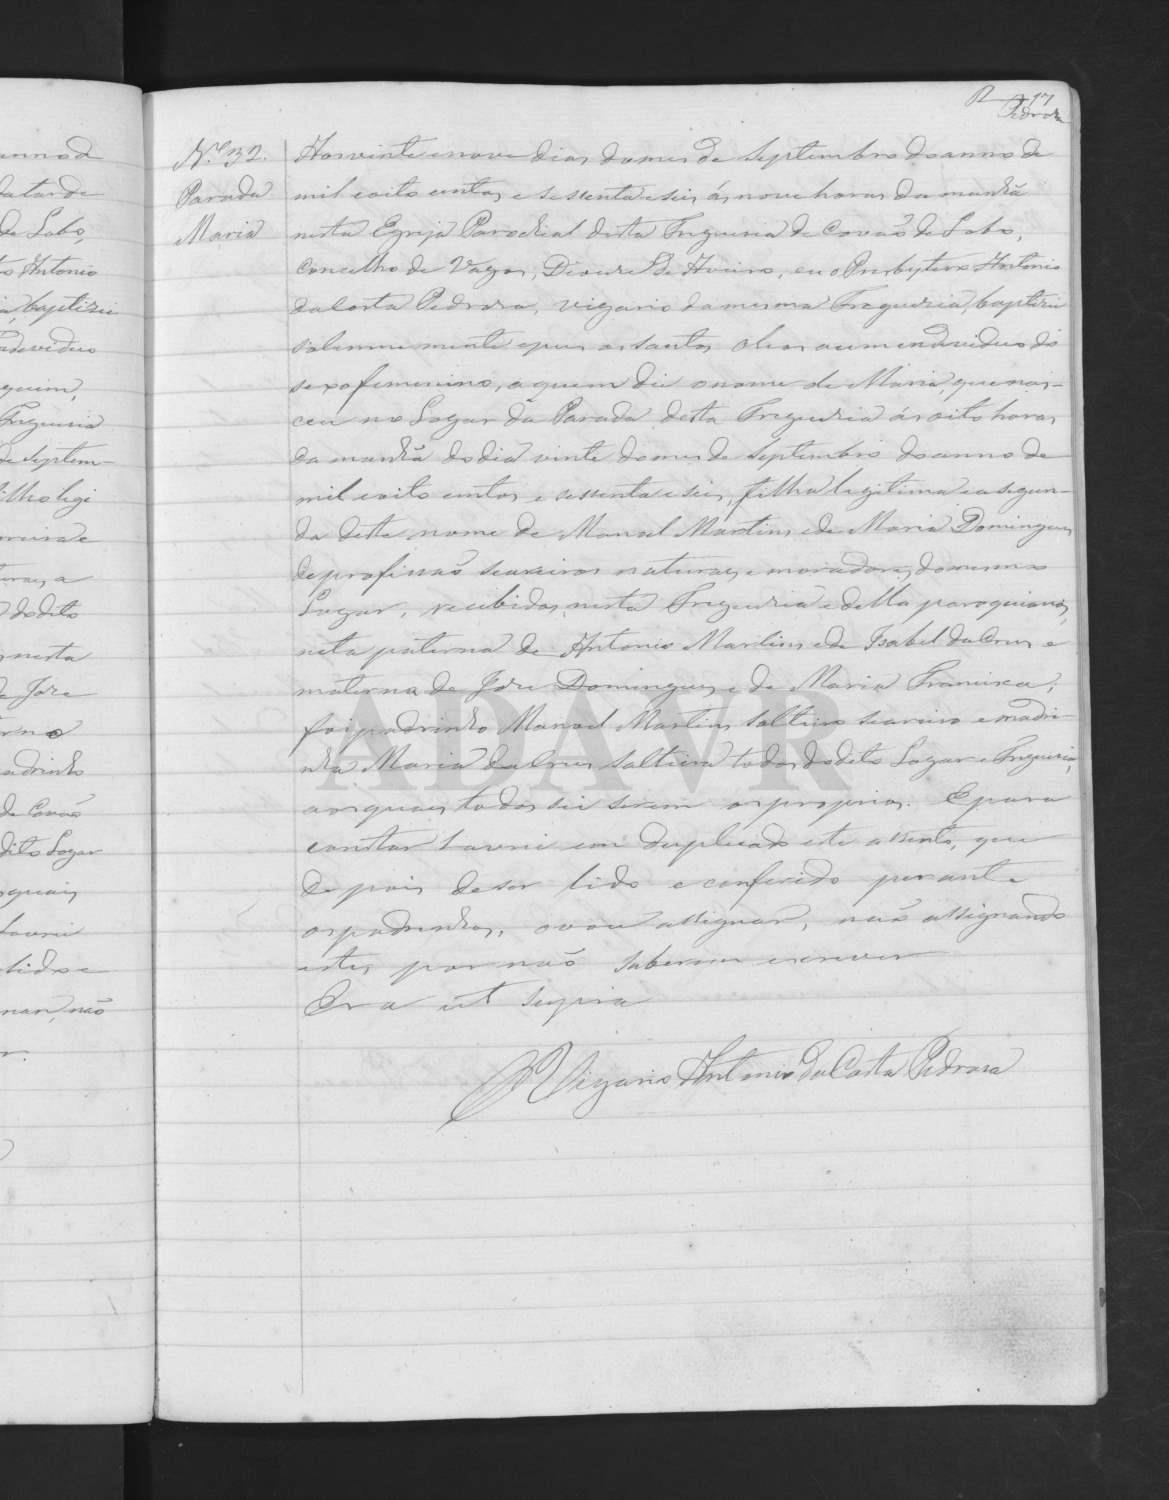 R 17
Pedroza
N.º 32.
Parada
Maria
Aos vinte e nove dias do mes de Septembro do anno de
mil e oito centos e sessenta e seis ás nove horas da manhã
nesta Egreja Parochial desta Freguesia de Covaõ de Lobo,
Concelho de Vagos, Diocese de Aveiro, eu o Presbytero Antonio
da Costa Pedroza, vigario da mesma Freguezia, baptizei
solemne mente e pus os santos Oleos a um endividuo do
sexo femenino, a quem dei o nome de Maria, que nas-
ceu no Logar da Parada desta Freguezia ás oito horas
da manhã do dia vinte do mes de Septembro do anno de
mil e oito centos e sessenta e seis, filha legitima e a segun-
da deste nome de Manoel Martins e de Maria Domingues
de profissaõ seareiros naturaes e moradores do mesmo
Logar, recebidos nesta Freguezia e della paroquianos,
neta paterna de Antonio Martins e de Isabel da Crus e
materna de Joze Domingues e de Maria Francisca;
foi padrinho Manoel Martins solteiro seareiro e madri-
nha Maria da Crus solteira todos do dito Logar e Freguezia,
aos quaes todos sei serem os proprios. E para
constar lavrei em duplicado este assento, que
depois de ser lido e conferido perante
os padrinhos, o vou assignar, naõ assignando
estes por naõ saberem escrever
Era ut supra
O Vigario Antonio da Costa Pedroza
anno d
da tarde
de Lobo,
Antonio
baptizei
endeviduo
quem,
Freguesia
de Septem-
filho legi
a
do dito
nesta
de Joze
adrinho
de Covaõ
dito Logar
quais
lavrei
lido e
nar, naõ
ADAVR